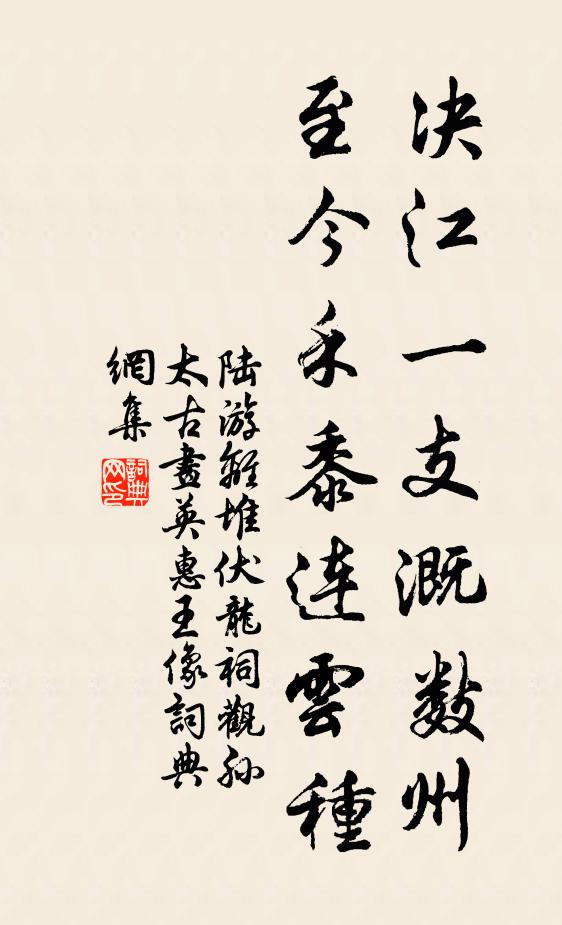 决江一支溉数州
至今禾黍连雲種
陆游離堆伏龍祠觀孙
太古畫英惠王像詞典
網集
詞典
网印